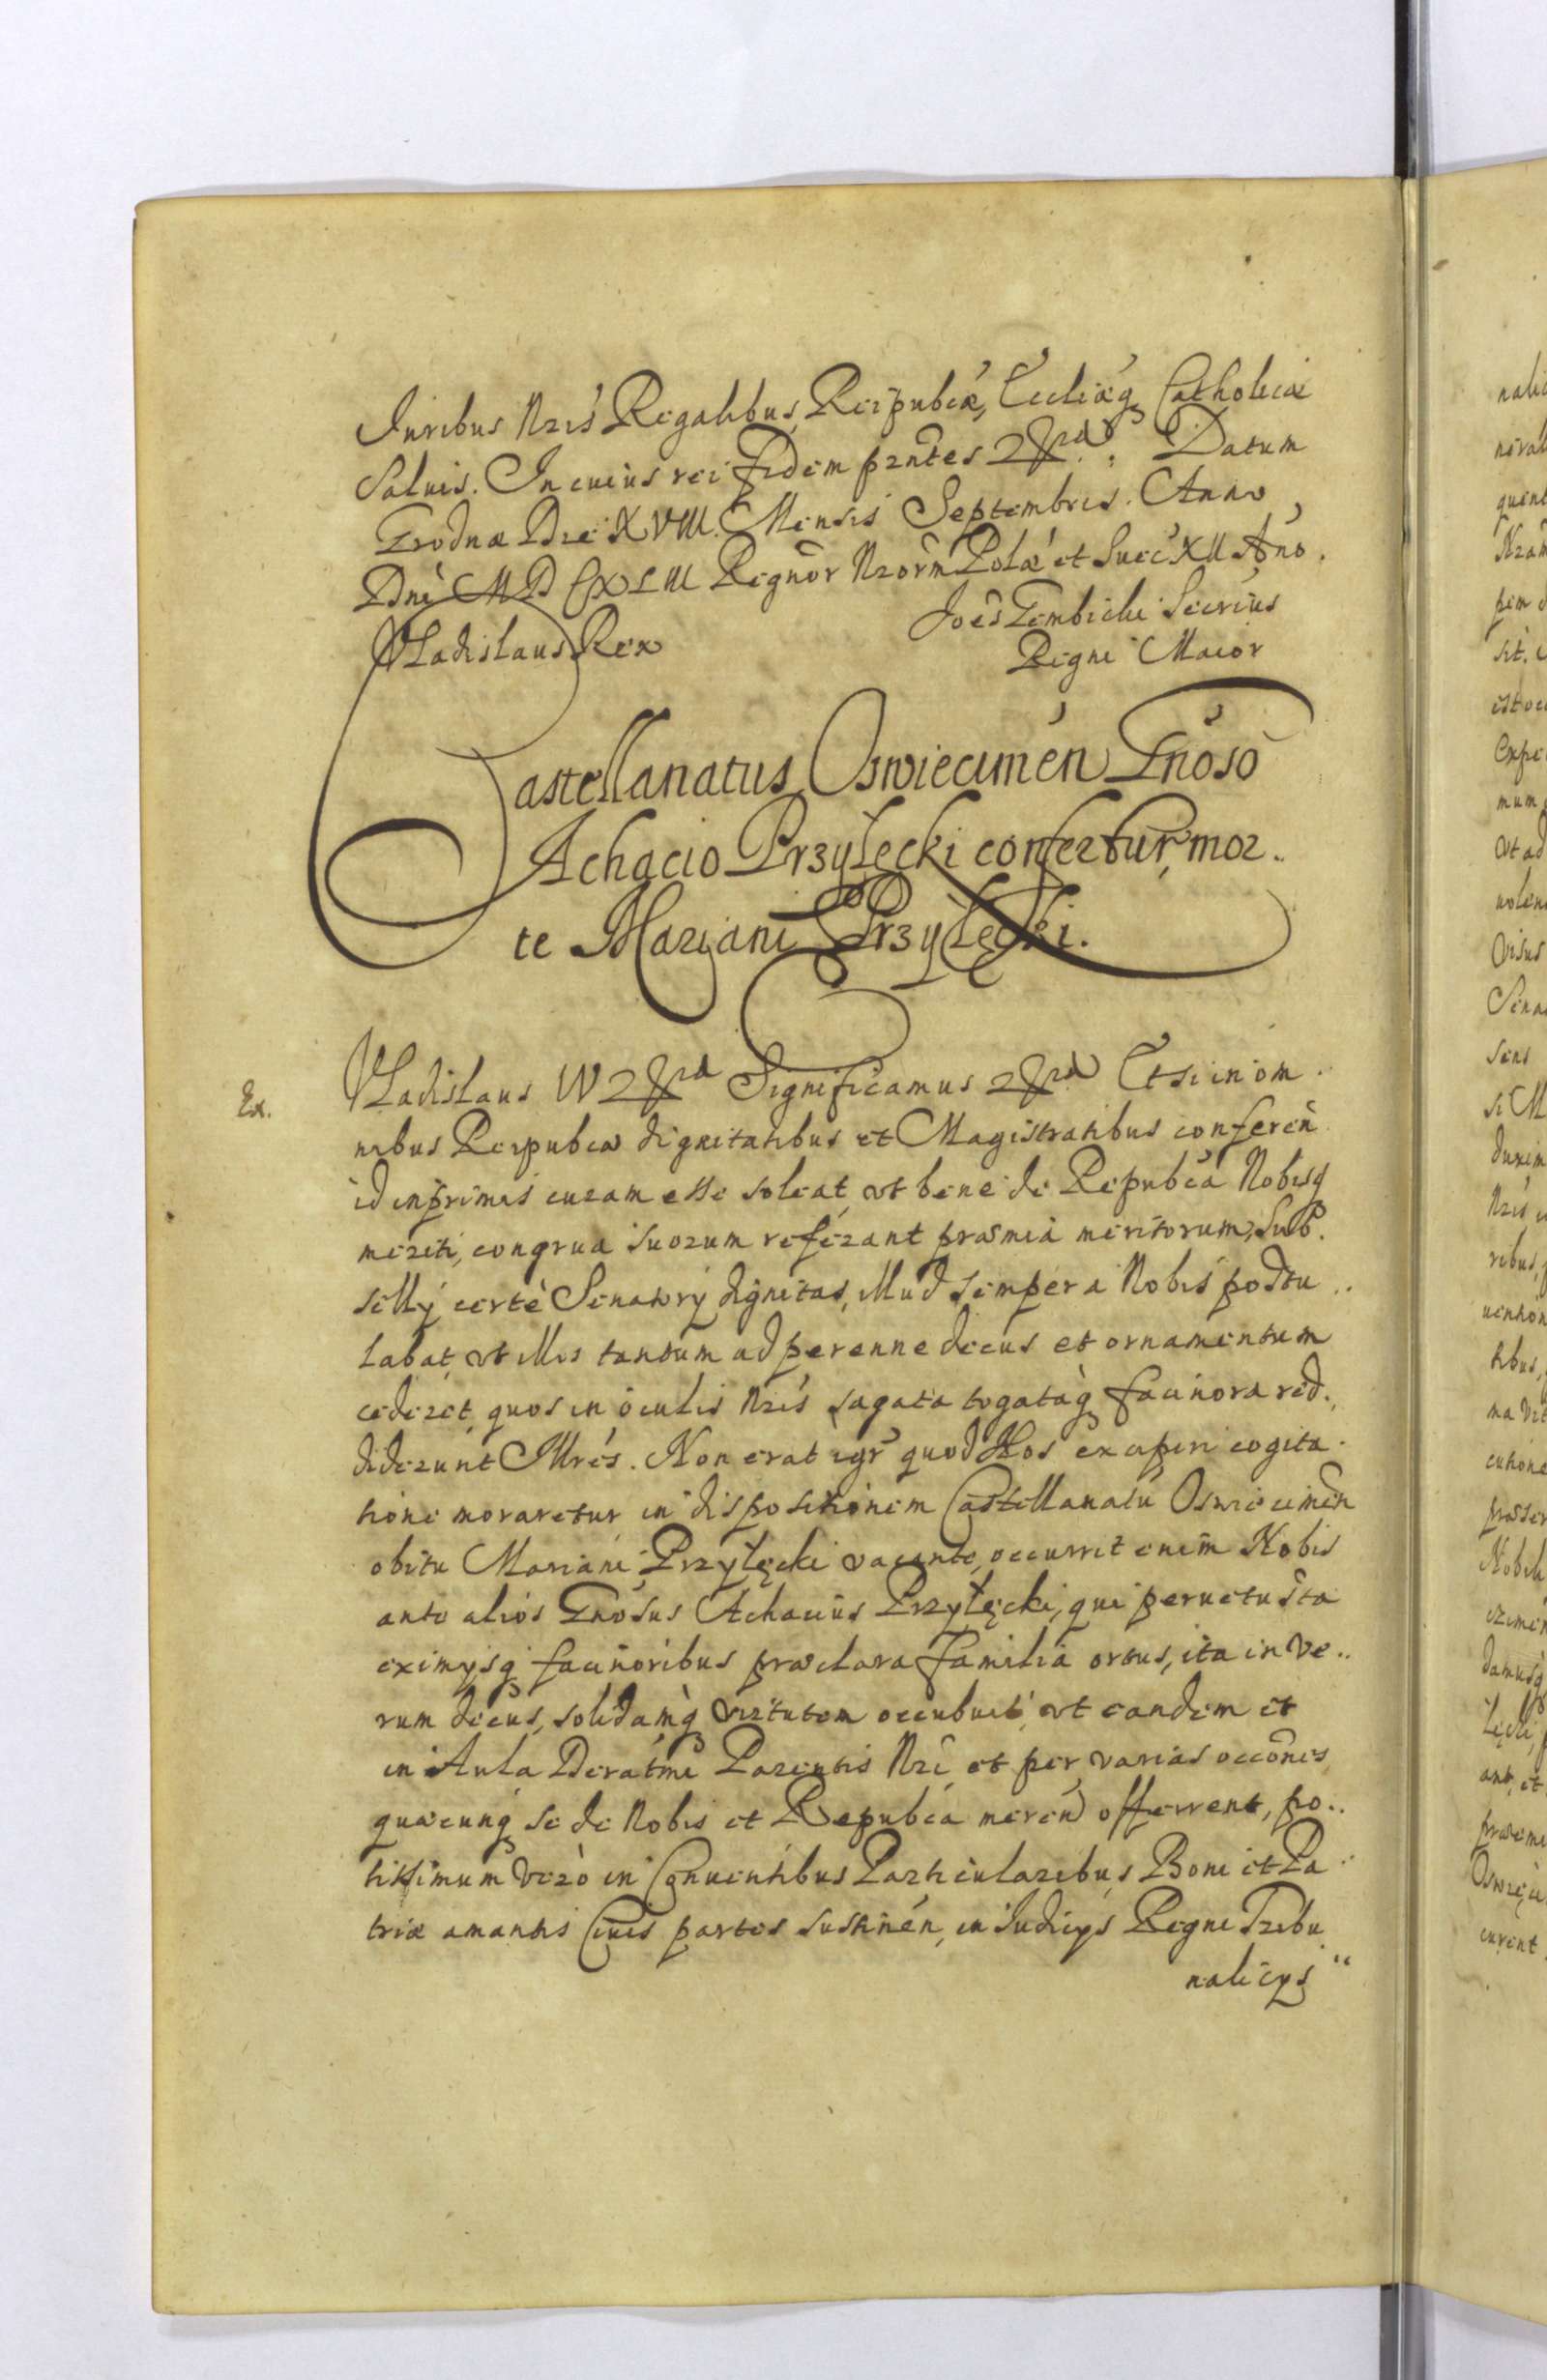 Iuribus Nris Regalibus, Reipubcæ, Eccliæq Catholicæ
Saluis. In cuius rei fidem pntes &c. Datum
Grodnæ Die XVIII. Mensis Septembris. Anno
Dni MDCXLIII Regnor Nrorm Polæ et Suec XII Ano.
Vladislaus Rex
Joes Gembicki Secrius
Regni Maior
Castellanatus Oswiecimen Gnoso
Achacio Przyłęcki confertur, mor..
te Mariani Przyłęcki.
Ex.
Vladislaus IV &c Significamus &c Etsi in om.
nibus Reipubcæ dignitatibus et Magistratibus conferen
id inprimis curam esse soleat, vt bene de Republca Nobisq
meriti, congrua suorum referant præmia meritorum, Sub.
sellÿ certè Senatorÿ dignitas, illud semper a Nobis postu..
labat, vt illis tantum ad perenne decus et ornamentum
cederet, quos in oculis Nris sagata togataq facinora red.
diderunt Illres. Non erat igr quod Nos excipiti cogita.
tione moraretur in dispositionem Castellanatu Oswiecimen
obitu Mariani Przyłęcki vacante, occurrit enim Nobis
ante alios Gnosus Achacius Przyłęcki, qui peruetusta
eximÿsq facinoribus præclara familia ortus, ita in ve..
rum decus, solidamq virtutem occubuit, vt eandem et
in Aula Deratmi Parentis Nri et per varias occones
quæcunq se de Nobis et Repubca meren offerrent, po..
tissimum verò in Conuentibus Particularibus Boni et Pa
triæ amantis Ciuis partes sustinen, in Iudicÿs Regni Tribu
nalicÿs
nali
quent
pem
sit.
Expe
mum
vt ad
nolen
Visus
Sena
sens
si M
duxim
Nris
ribus,
tibus,
Nobili
damusq
łęcki,
ant, et
curent